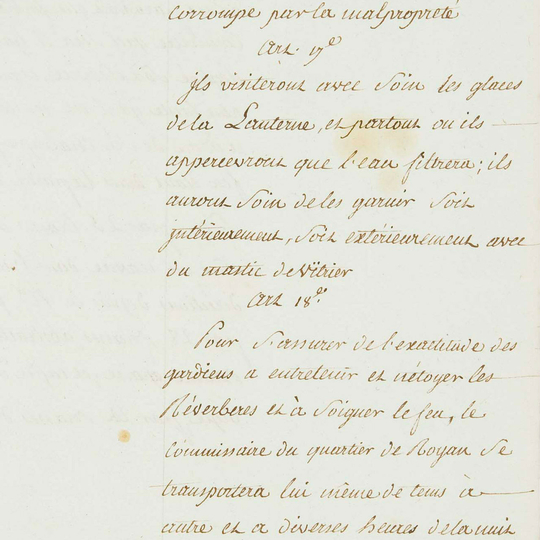 corrompe par la malpropreté
Art. 17e
jls visiteront avec soin les glaces
de la Lanterne, et partout ou ils
appercevront que l'eau filtrera; ils
auront soin de les garnir soit
jntérieurement, soit extérieurement avec
du mastic de Vitrier
Art 18e.
Pour s'assurer de l'exactitude des
gardiens a entretenir et nétoyer les
Réverberes et à soigner le feu, le
commissaire du quartier de Royan se
transportera lui même de tems à
autre et a diverses heures de la nuit